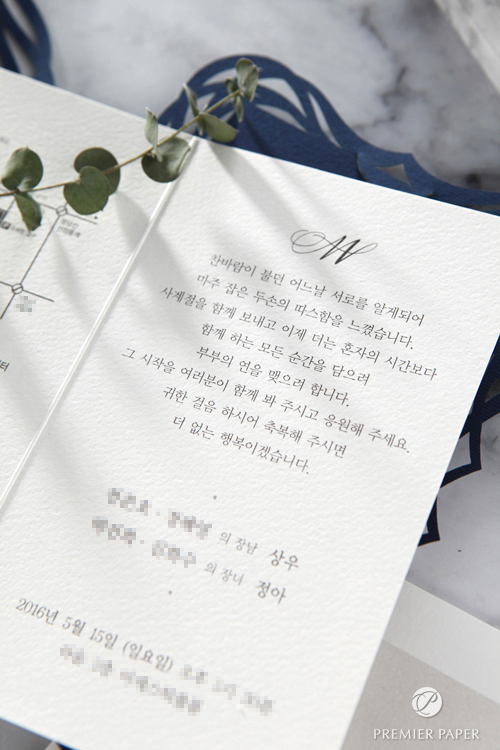 W
찬바람이 불던 어느날 서로를 알게되어
마주 잡은 두손의 따스함을 느꼈습니다.
사계절을 함께 보내고 이제 더는 혼자의 시간보다
함께 하는 모든 순간을 담으려
부부의 연을 맺으려 합니다.
그 시작을 여러분이 함께 봐 주시고 응원해 주세요.
귀한 걸음 하시어 축복해 주시면
더 없는 행복이겠습니다.
의 장남 상우
의 장녀 정아
2016년 5월 15일 (일요일)
P
PREMIER PAPER